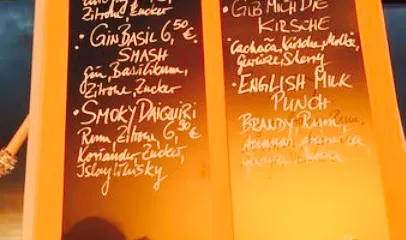 Zitrone, Zucker
• GIN BASIL 6,50 €
SMASH
Gin, Basilikum,
Zitrone, Zucker
• SMOKY DAIQUIRI
Rum, Zitrone 6,50 €
Koriander, Zucker,
Islay Whisky
• GIB MICH DIE
KIRSCHE
Cachaca, Kirsche, Molke,
Gewürze, Sherry
• ENGLISH MILK
PUNCH
BRANDY, Rum,
Ananas,